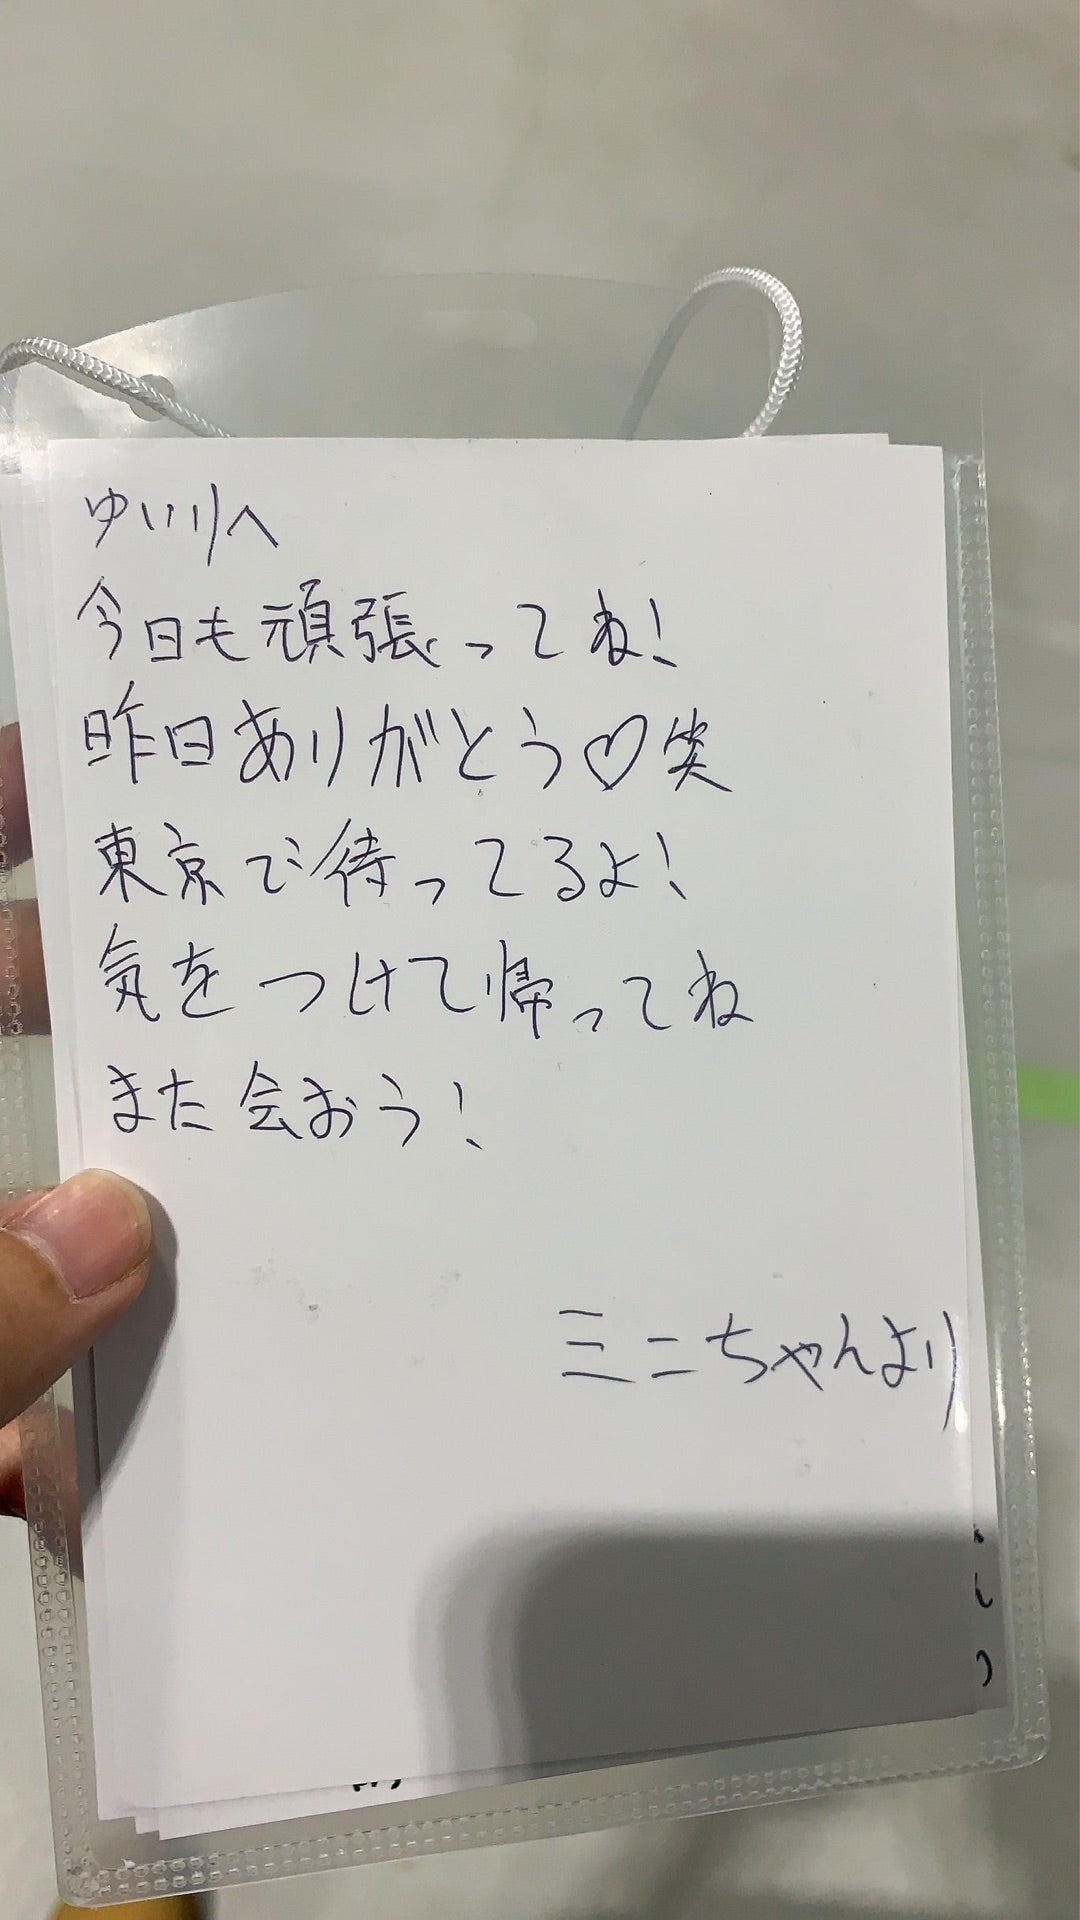 ゆいりへ
今日も頑張ってね！
昨日ありがとう♡笑
東京で待ってるよ！
気をつけて帰ってね
また会おう！
ミニちゃんより